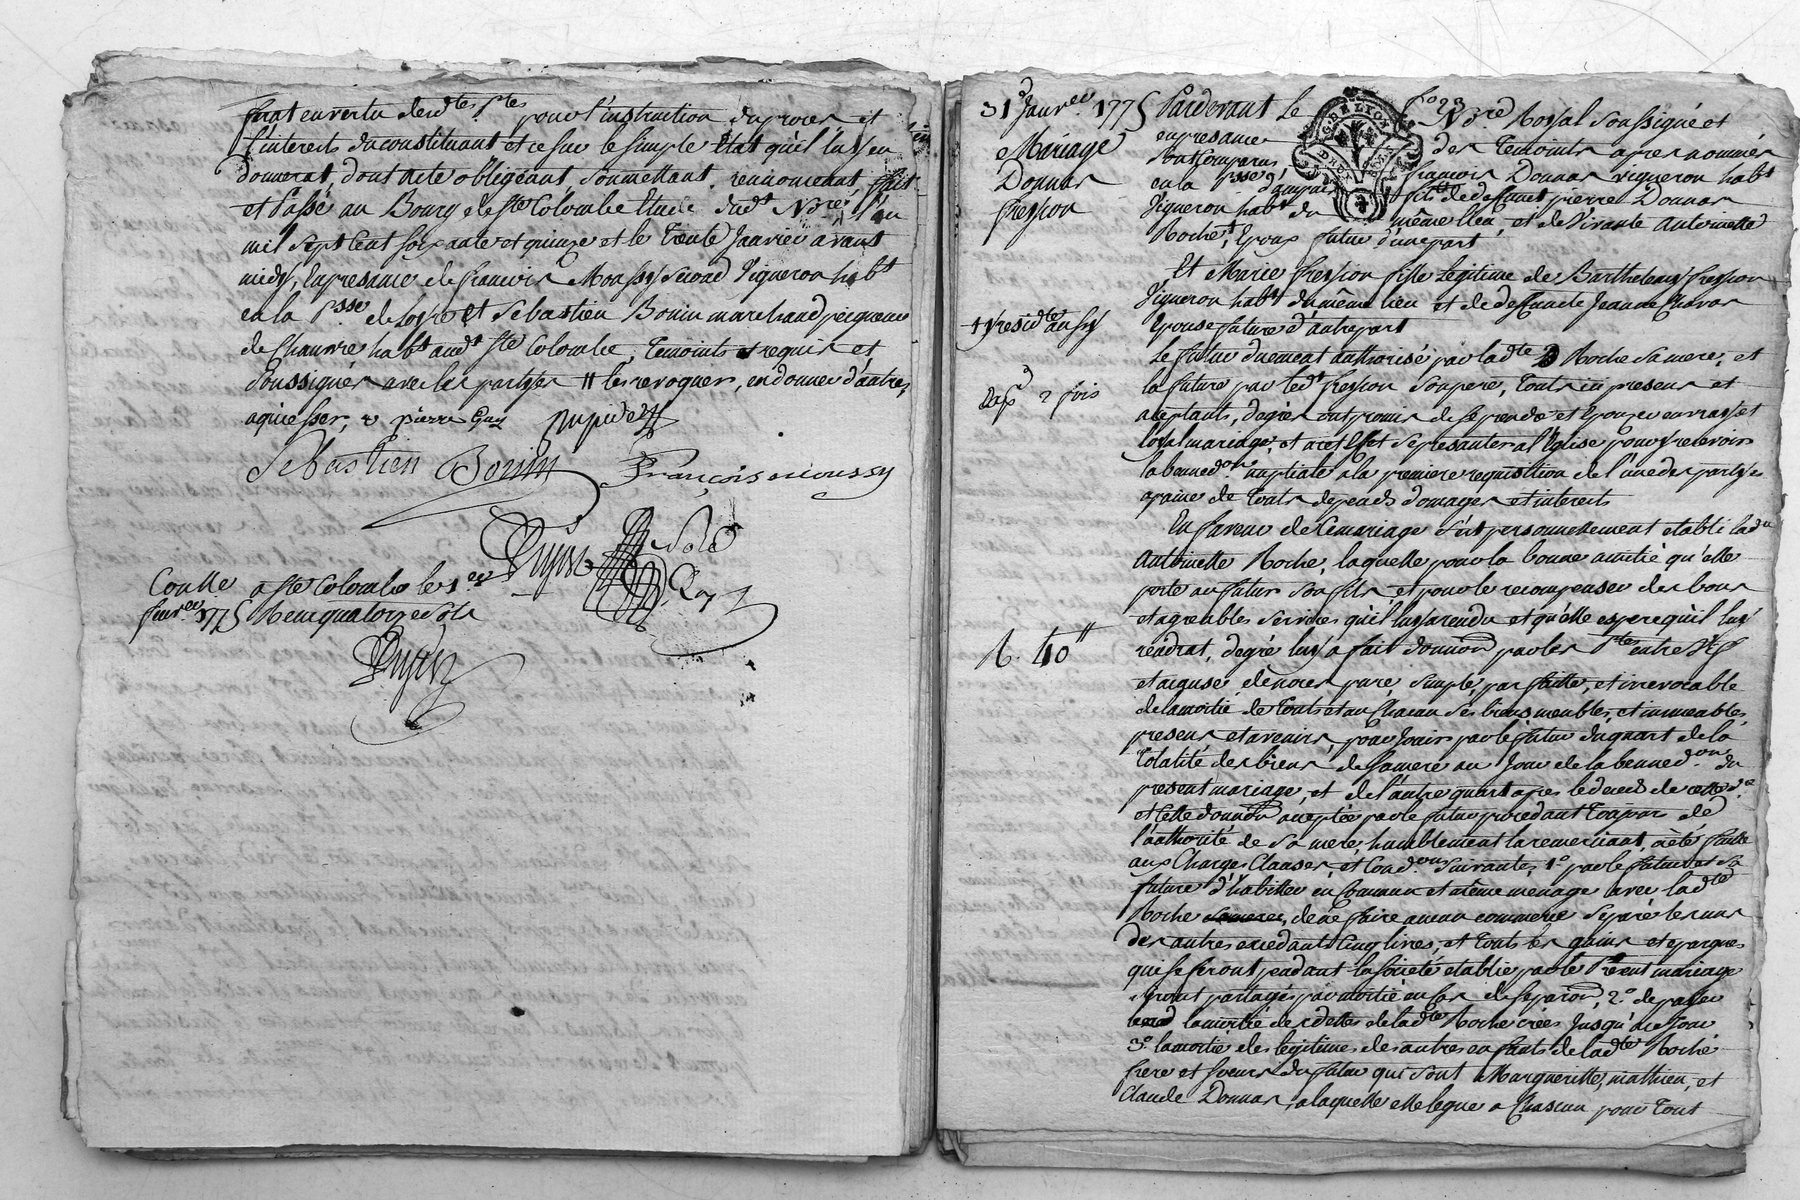 fait en vertu desd.tes p.tes pour l'instruction du proces et
l'interets du constituant et ce sur le simple Etat qu'il luy en
donnerat, dont acte obligeant, soumettant, renonceant, fait
et Passé au Bourg de Ste Colombe Etude dud.t No.re l'an
mil sept cent soixante et quinze et le Trente Janvier avant
midy, En presance de françois Moussy second Vigneron hab.t
en la P.sse de et Sebastien Bonin marchand peigneur
de Chanvre hab.t aud.t Ste Colombe, Temoints requis et
Soussignés avec les partyes // les revoquer, en donner d'autres,
aquiesser, pierre Guy
Sebastien Bonin françois moussy
Conlle a Ste Colombe le 1.er
fevr.er 1775 Recu quatorze sols
f.o 23
31 Janv.er 1775 Pardevant le No.re Royal soussigné et
en presance des Temoints apres nommés
Mariage
Donnas
freyson
sont comparus françois Donnas vigneron hab.t
en la P.sse d'ampuis fils de deffunt pierre Donnas
Vigneron hab.t du même lieu, et de Vivante Antoinette
Roche, Epoux futur d'une part
Et Marie freyson fille Legitime de Barthelemy freyson
Vigneron hab.t du même lieu et de deffuncte Jeanne Chavas
Epouse future d'autre part
Le futur duement authorisé par lad.te Roche sa mere, et
la future par led.t freyson son pere, touts icy presens et
2 fois
aceptants, de grés ont promis de se prendre et Epouser en vray et
loyal mariage, et a cet Effet se presanter a l'Eglise pour y recevoir
la bened.on nuptiale a la premiere requisition de l'une des partyes
a paine de touts depends domages et interets
En faveur de ce mariage s'est personnellement etabli lad.e
Antoinette Roche, laquelle pour la bonne amitié qu'elle
porte au futur son fils et pour le recompenser des bons
et agreables services qu'il luy a rendu et qu'elle espere qu'il luy
R. 40"
rendrat, de gré luy a fait donnaon par les p.tes entre vifs
et a cause de noces pure, simple, parfaitte, et irrevocable
de la moitié de touts et un Chacun ses biens meubles, et immeubles,
presens et avenirs, pour Jouir par le futur du quart de la
totalité des biens de sa mere au Jour de la bened.on du
present mariage, et de l'autre quart apres le deces de cette d.e
et cette donnaon aceptée par le futur procedant toujours de
l'authorité de sa mere, humblement la remerciant, a èté faitte
aux Charges Clauses, et Cond.ons suivantes, 1.o par le futur et sa
future d'habiller en Commun et même menage avec lad.te
Roche, de ne faire aucun commerce separé les uns
des autres exedant cinq livres, et touts les gains et epargnes
qui se feront pendant la société etablie par le Present mariage
seront partagés par moitié en cas de separaon, 2.o de payer
la moitié des dettes de lad.te Roche crées Jusqu'au ce Jour
3.o la moitié des legitimes des autres enfants de lad.te Roche
frere et sœurs du futur qui sont Marguerite, mathieu, et
Claude Donnas, a laquelle elle legue a Chascun pour tout